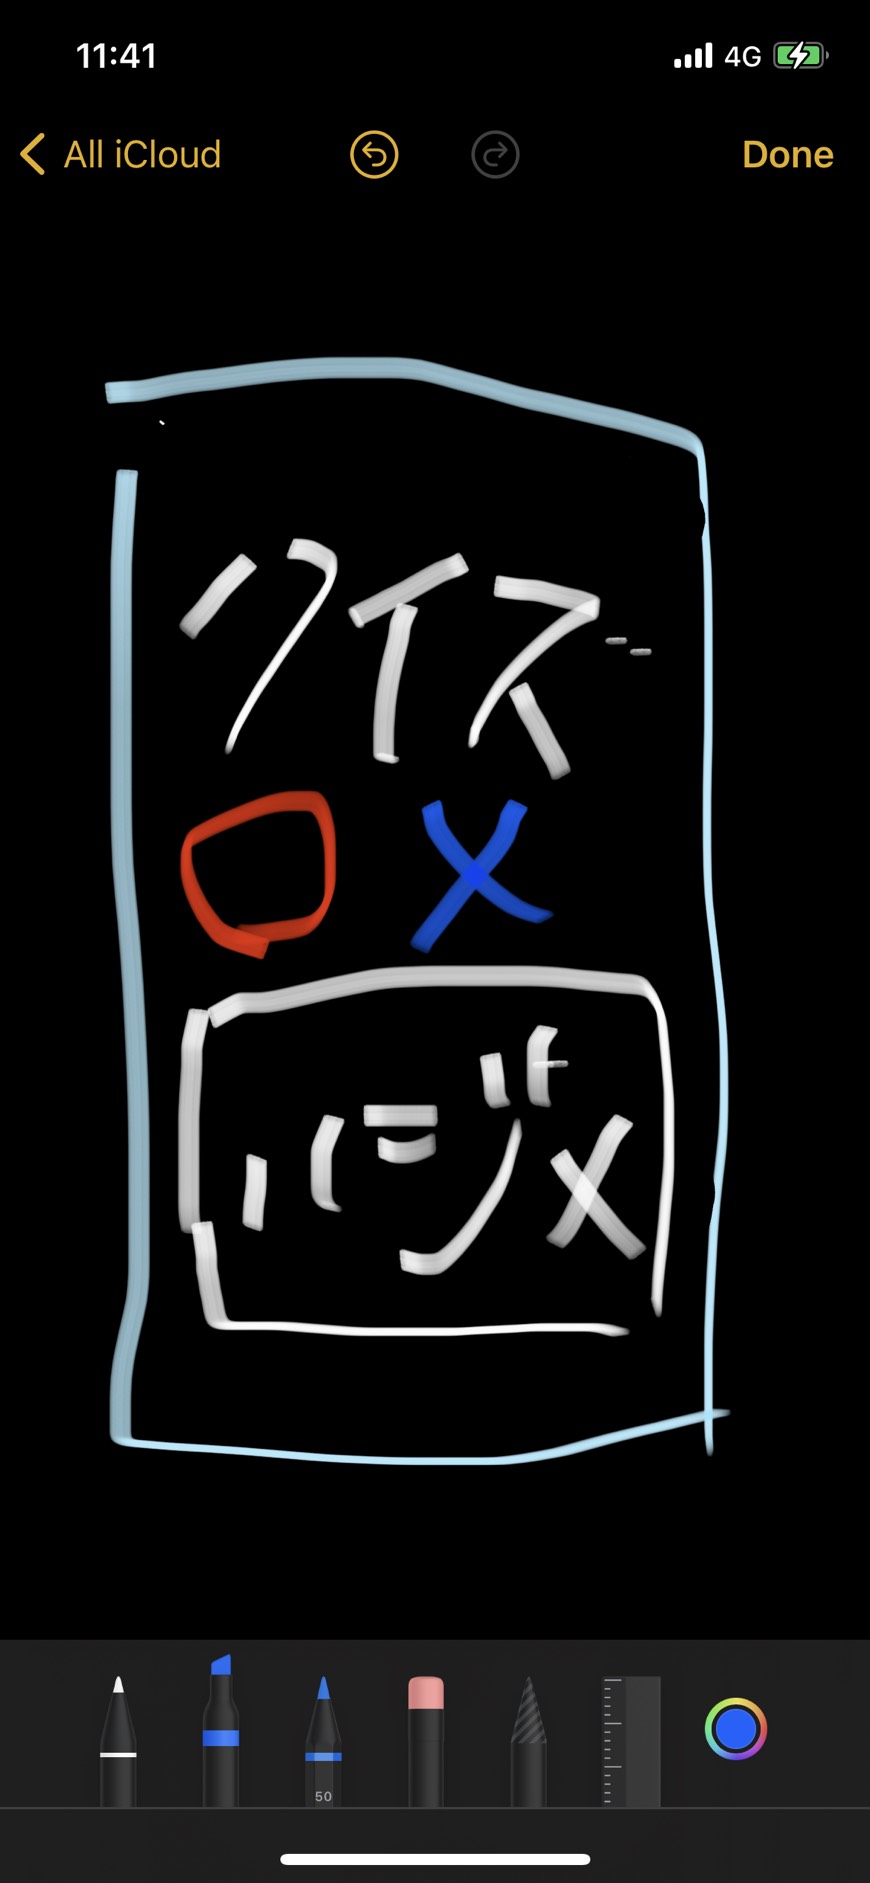 11:41 4G
All iCloud Done
クイズ
○×
ハジメ
50